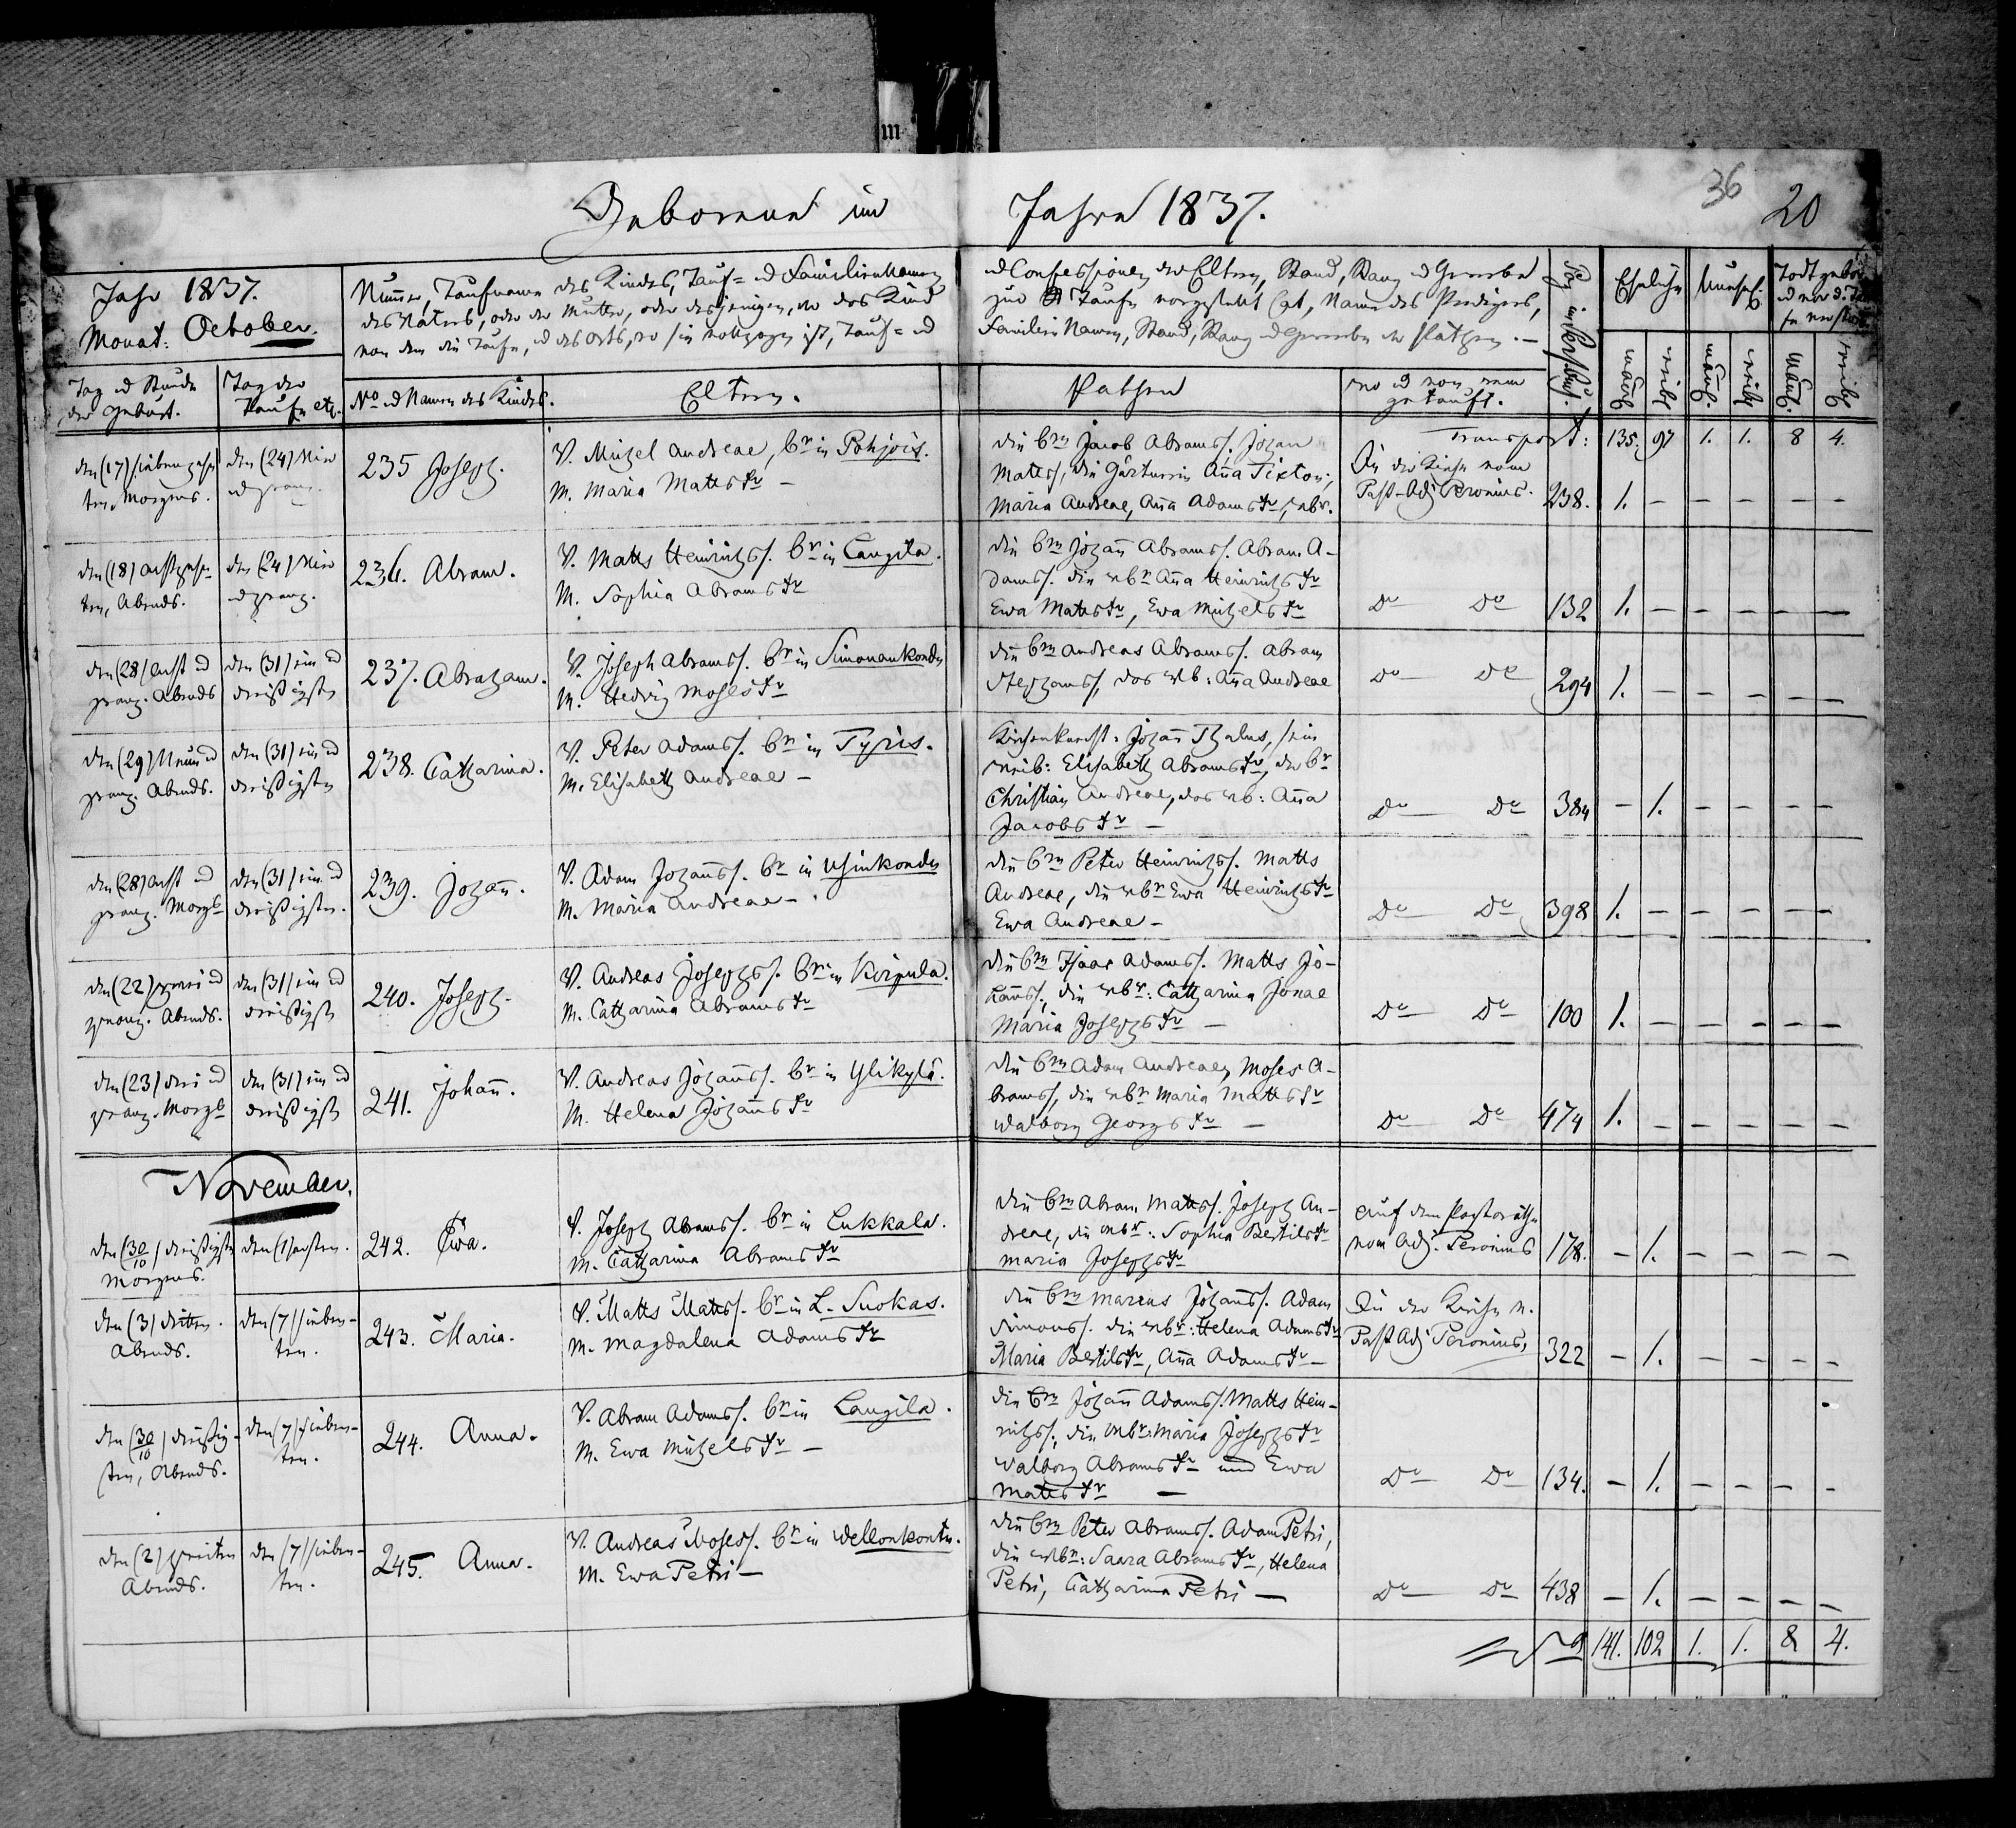 36
20
Geborene im Jahre 1837.
Jahr 1837.
Monat: October.
Numer, Taufname des Kindes, Tauf= und Familien Namen
und Confessionen der Eltern, Stand, Rang und Gewerbe
des Vaters, oder der Mutter, oder desjenigen, der das Kind
zur Taufe vorgestellt hat, Name des Predigers,
von dem die Taufe, und des Orts, wo sie vollzogen ist, Tauf= und
Familien Namen, Stand, Rang und Gewerbe der Pathen.—
Pag in
Eheliche
Unehel.
Todtgebor.
Tag und Stunde
der Geburt.
Tag der
Taufe etc.
No und Namen des Kindes.
Eltern.
Pathen
wo und von wem
getauft.
männl.
weibl.
männl.
weibl.
männl.
weibl.
Transport: 135. 97 1. 1. 8 4.
den (17) siebenzehn-
ten, Morgens.
den (24) vier
und zwanz.
235 Joseph.
V. Michel Andreae, Br in Pohjois.
M. Maria Matts Tr —
die Brn Jacob Abramss. Johan
Mattss, die Gärtnerin Anna Tixton,
Maria Andreae, Anna Adams Tr, Wbr.
In der Kirche vom
Past-Adj Peronius.
238. 1. — — — — —
den (18) achtzehn-
ten, Abends.
den (24) vier
und zwanz.
236. Abram.
V. Matts Heinrichss. Br in Laugila.
M. Sophia Abrams Tr
die Brn Johann Abramss. Abram A-
damss. die Wbr Anna Heinrichs Tr
Ewa Matts Tr, Ewa Michels Tr
Do Do 132 1. — — — — —
den (28) acht und
zwanz. Abends
den (31) ein und
dreißigsten
237. Abraham.
V. Joseph Abramss. Br in Simonankondu
M. Hedwig Moses Tr
die Brn Andreas Abramss. Abram
Stephanss, das Wb: Anna Andreae
Do Do 294 1. — — — — —
den (29) Neun und
zwanz. Abends.
den (31) ein und
dreißigsten
238. Catharina.
V. Peter Adamss. Br in Pyris.
M. Elisabeth Andreae —
Kirchenknecht: Johann Thalus, sein
Weib: Elisabeth Abrams Tr, der Br
Christian Andreae, das Wb: Anna
Jacobs Tr —
Do Do 384 — 1. — — — —
den (28) acht und
zwanz. Morgs
den (31) ein und
dreißigsten.
239. Johann.
V. Adam Johannss. Br in Usinkondu
M. Maria Andreae —
die Brn Peter Heinrichss. Matts
Andreae, die Wbr Ewa Heinrichs Tr
Ewa Andreae —
Do Do 398 1. — — — — —
den (22) zwei und
zwanz. Abends.
den (31) ein und
dreißigst
240. Joseph.
V. Andreas Josephss. Br in Koipula.
M. Catharina Abrams Tr
die Brn Isaac Adamss. Matts Jo-
hannss., die Wbr: Catharina Jonae
Maria Josephs Tr —
Do Do 100 1. — — — — —
den (23) drei und
zwanz. Morgs
den (31) ein und
dreißigst
241. Johann.
V. Andreas Johannss. Br in Ylikylä.
M. Helena Johanns Tr
die Brn Adam Andreae, Moses A-
bramss, die Wbr Maria Matts Tr
Walborg Georgs Tr —
Do Do 474 1. — — — — —
November.
den (30/10) dreißigsten
Morgens.
den (1) ersten.
242. Ewa.
V. Joseph Abramss. Br in Lukkala.
M. Catharina Abrams Tr
die Brn Abram Mattss. Joseph An-
dreae, die Wbr: Sophia Bertils Tr
Maria Josephs Tr
auf dem Pastorathe
vom Adj. Peronius
178. — 1. — — — —
den (3) dritten.
Abends.
den (7) sieben-
ten.
243. Maria.
V. Matts Mattss. Br in L. Suokas.
M. Magdalena Adams Tr
die Brn Marcus Johannss. Adam
Simonss. die Wbr: Helena Adams Tr
Maria Bertils Tr, Anna Adams Tr —
In der Kirche v.
Past Adj Peronius,
322 — 1. — — — —
den (30/10) dreißig-
sten, Abends.
den (7) sieben-
ten.
244. Anna.
V. Abram Adamss. Br in Laugila.
M. Ewa Michels Tr —
die Brn Johann Adamss. Matts Hein-
richss., die Wbr: Maria Josephs Tr
Walborg Abrams Tr und Ewa
Matts Tr —
Do Do 134. — 1. — — — —
den (2) zweiten
Abends.
den (7) sieben-
ten.
245. Anna.
V. Andreas Mosess. Br in Wellonkontu.
M. Ewa Petri —
die Brn Peter Abramss. Adam Petri,
die Wbr: Saara Abrams Tr, Helena
Petri, Catharina Petri —
Do Do 438 — 1. — — — —
141. 102 1. 1. 8 4.